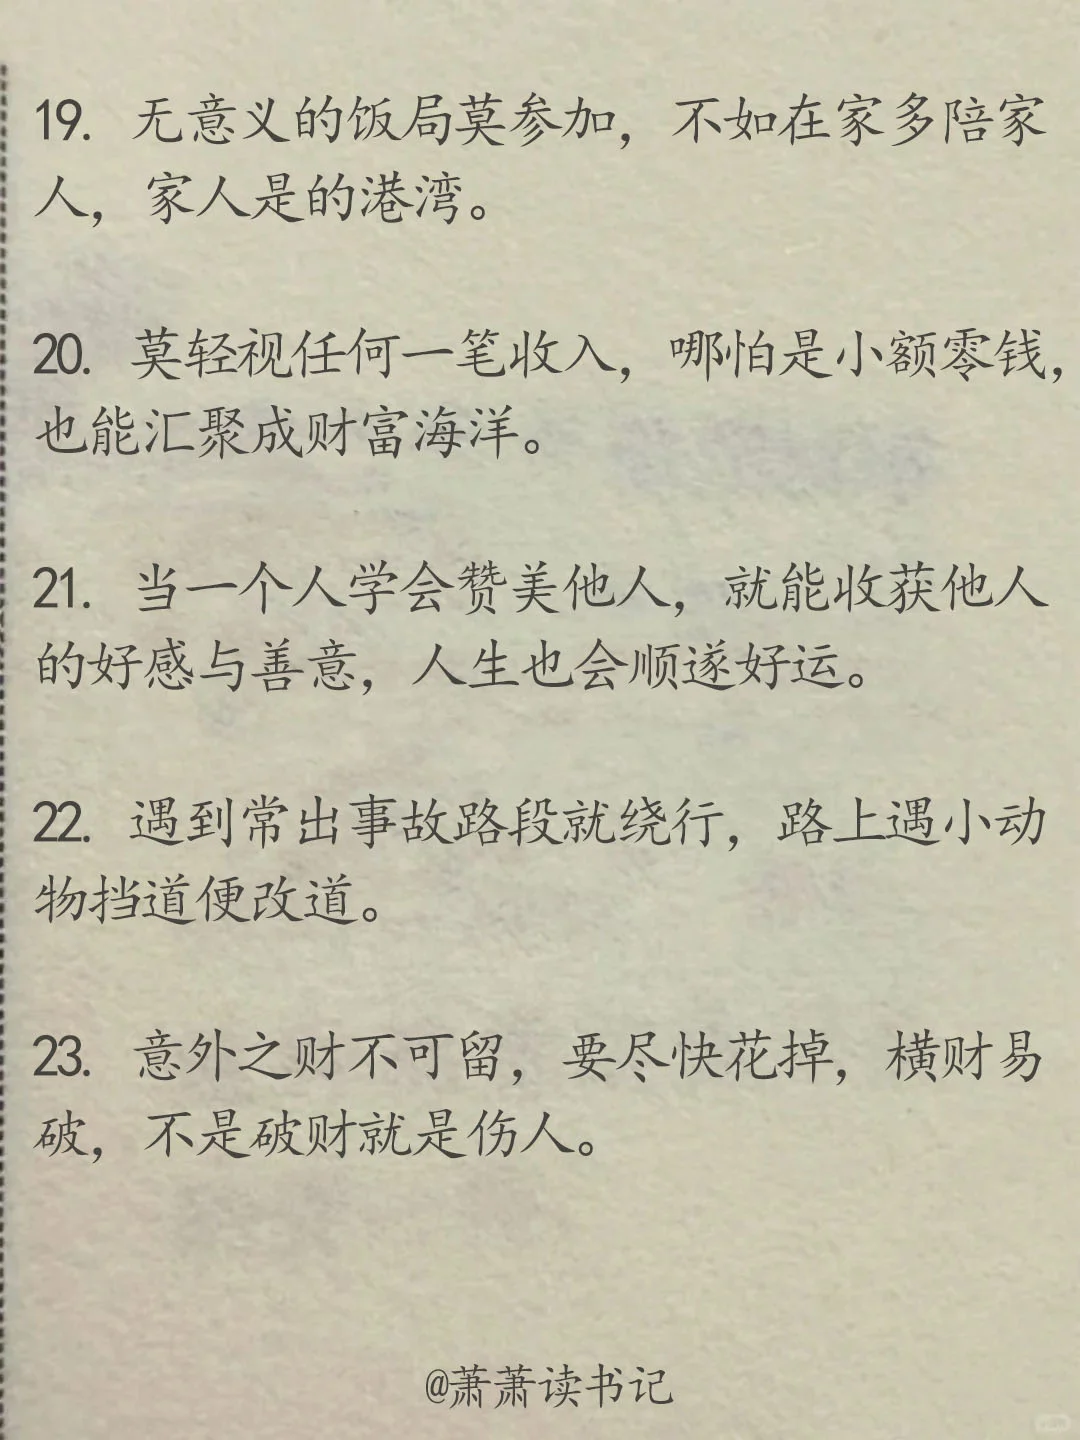 19. 无意义的饭局莫参加，不如在家多陪家
人，家人是的港湾。
20. 莫轻视任何一笔收入，哪怕是小额零钱，
也能汇聚成财富海洋。
21. 当一个人学会赞美他人，就能收获他人
的好感与善意，人生也会顺遂好运。
22. 遇到常出事故路段就绕行，路上遇小动
物挡道便改道。
23. 意外之财不可留，要尽快花掉，横财易
破，不是破财就是伤人。
@萧萧读书记